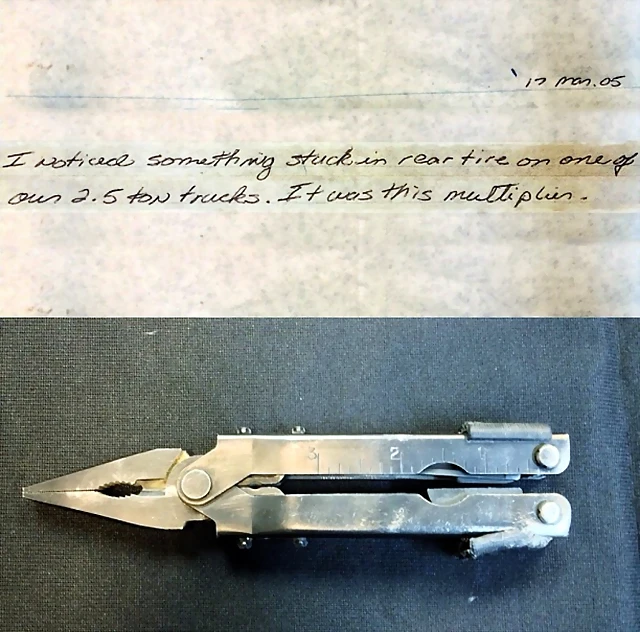 17 Mar. 05
I noticed something stuck in rear tire on one of
our 2.5 ton trucks. It was this multiplier.
3 2 1